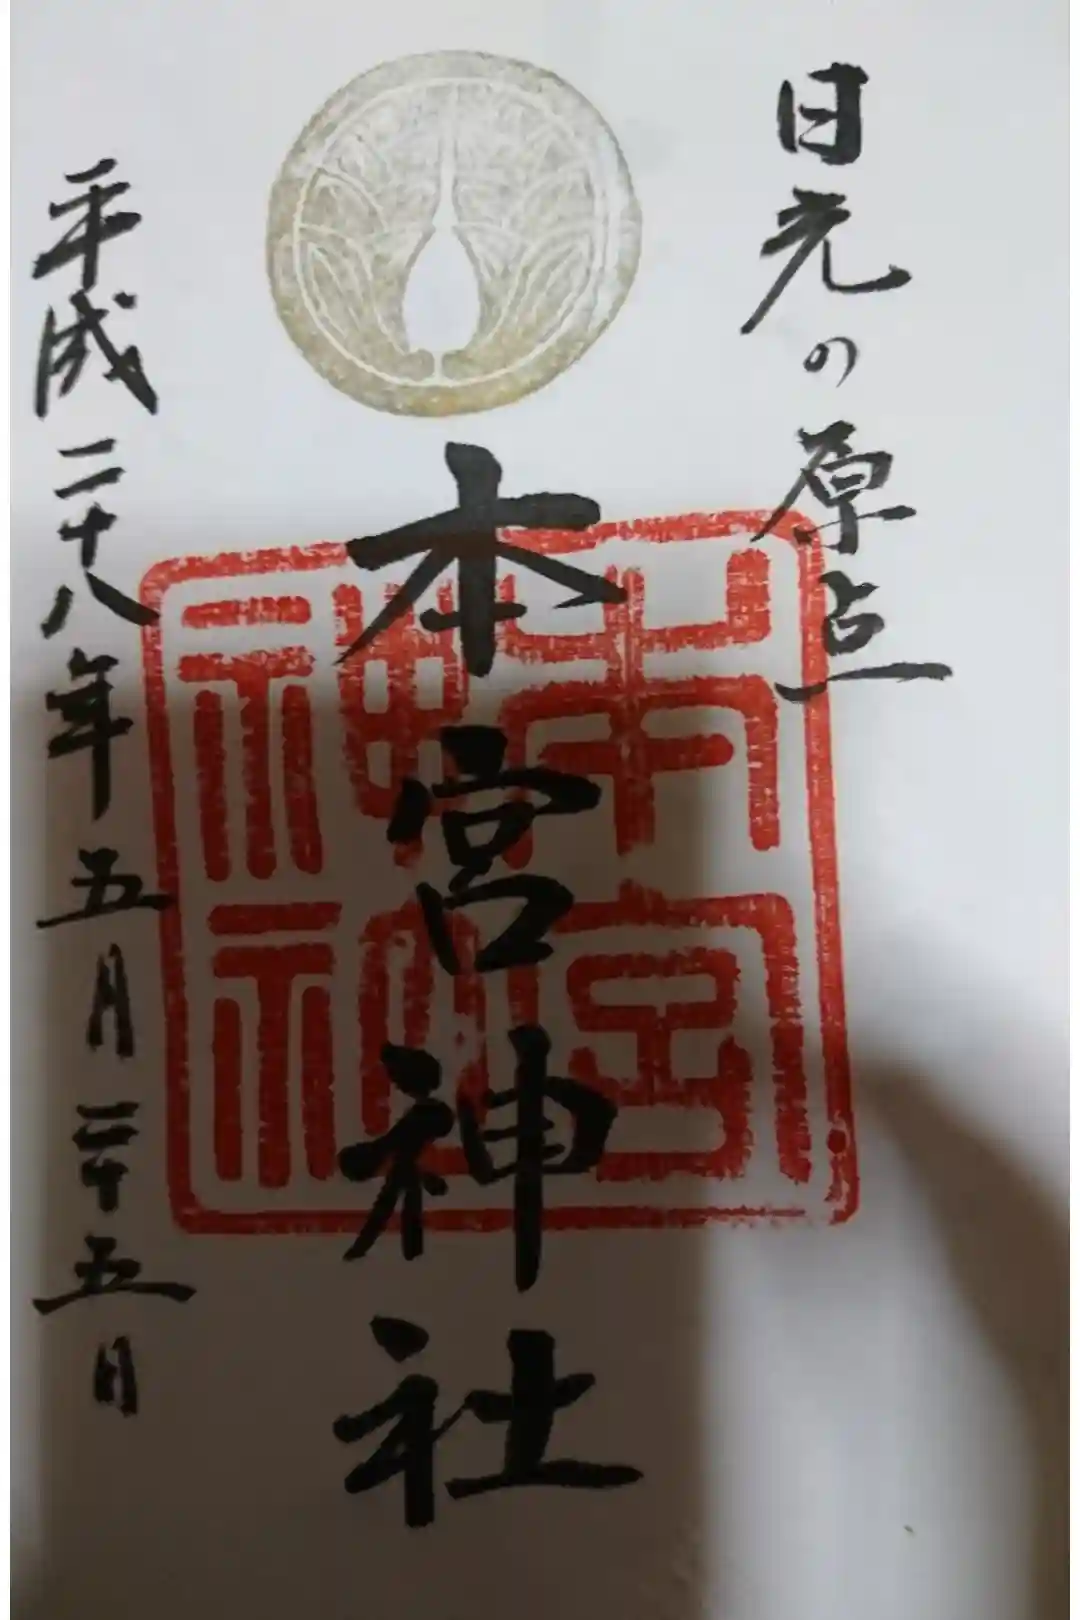 日光の原点
本宮神社
本宮神社
平成二十八年五月二十五日